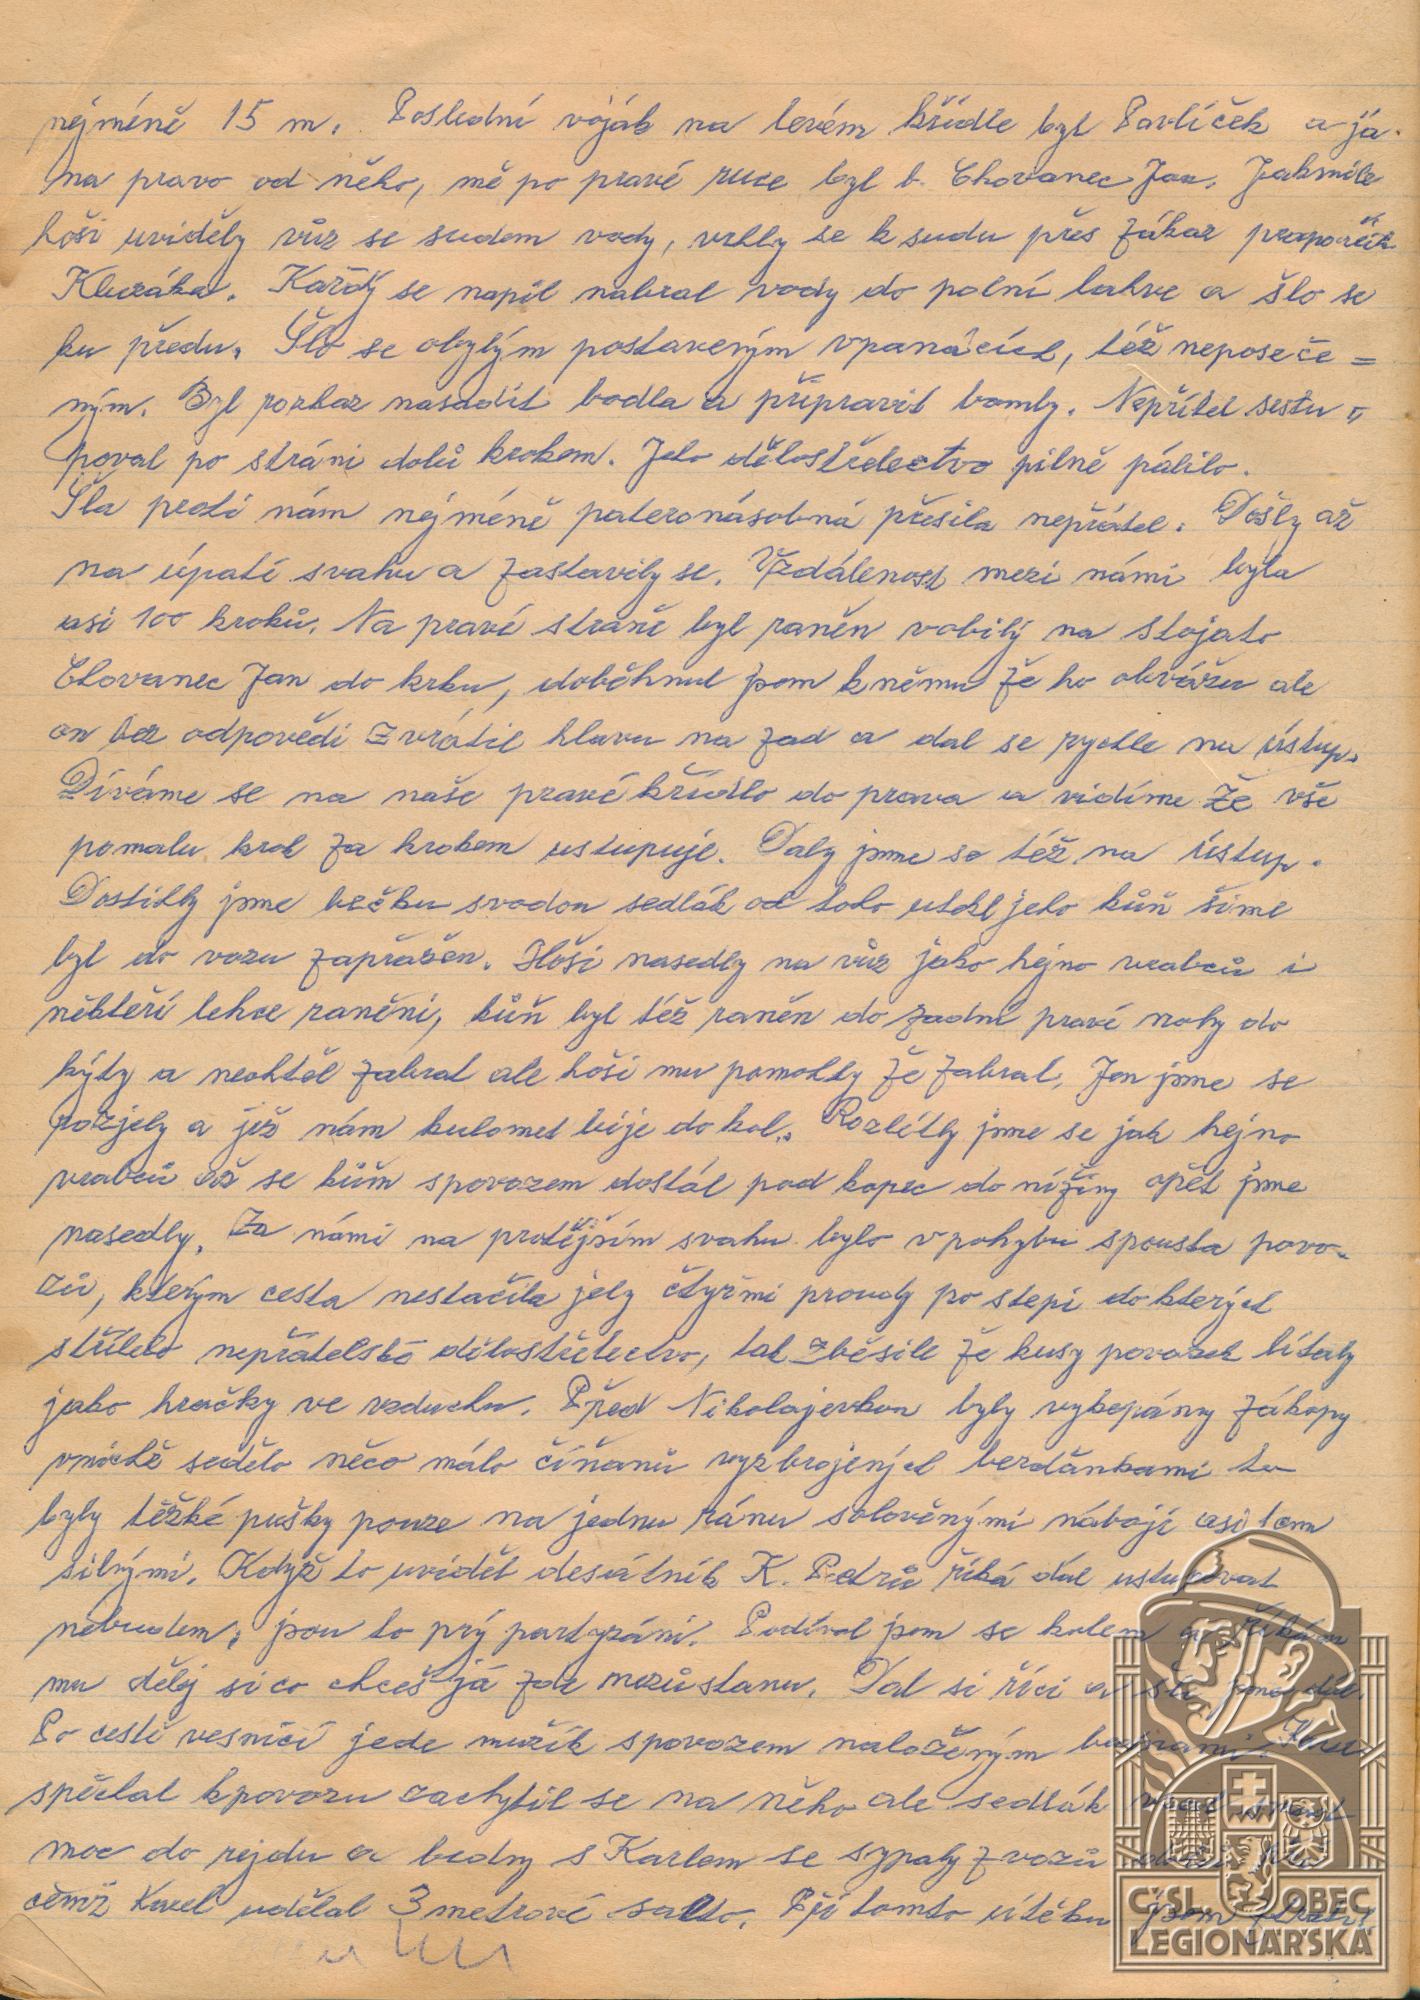 néjméně 15 m. Poslední voják na levém křídle byl Pavlíček a já
na pravo od něho, mě po pravé ruce byl b. Chovanec Jan. Jakmile
hoši uviděly vůz se sudem vody, vrhly se k sudu přes zákaz praporčík
Kluzáka. Každý se napil nabral vody do polní lahve a šlo se
ku předu. Šlo se obylým postaveným vpanácích, též neposeče=
ným. Byl rozkaz nasadit bodla a připravit bomby. Nepřítel sestu=
poval po stráni dolů krokem. Jeho dělostřelectvo pilně pálilo.
Šla proti nám néjméně pateronásobná přesila nepřátel. Došly až
na úpatí svahu a zastavily se. Vzdálenost mezi námi byla
asi 100 kroků. Na pravé straně byl raněn vobilý na stojato
Chovanec Jan do krku, doběhnul jsem kněmu že ho obvážu ale
on bez odpovědi zvrátil hlavu na zad a dal se rychle na ústup.
Díváme se na naše pravé křídlo do prava a vidíme že vše
pomalu krok za krokem ustupuje. Daly jsme se též na ústup.
Dostihly jsme bečku svodou sedlák od toho utekl jeho kůň šiml
byl do vozu zapřažen. Hoši nasedly na vůz jako hejno vrabců i
někteří lehce raněni, kůň byl též raněn do zadní pravé nohy do
kýty a nechtěl zabrat ale hoši mu pomohly že zabral. Jen jsme se
rozjely a již nám kulomet bije do kol. Rozlítly jsme se jak hejno
vrabců až se kůň spovozem dostal pod kopec do nížiny opět jsme
nasedly. Za námi na protějším svahu bylo vpohybu spousta povo=
zů, kterým cesta nestačila jely čtyřmi proudy po stepi do kterých
střílelo nepřátelsko dělostřelectvo, tak zběsile že kusy povozek lítaly
jako hračky ve vzduchu. Před Nikolajevkou byly vykopány zákopy
vnichž sedělo něco málo číňanů vyzbrojených berdánkami to
byly těžké pušky pouze na jednu ránu solověnými náboji asi 1 cm
silnými. Když to uviděl desátník K. Petrů říká dál ustupovat
nebudem, jsou to prý partyzáni. Podíval jsem se kolem a říkám
mu dělej si co chceš já zde nezůstanu. Dal si říci a šli jsme dál.
Po cestě vesnicí jede mužík spovozem naloženým bednami. Karel
spěchal kpovozu zachytil se na něho ale sedlák
moc do rejdu a bedny s Karlem se sypaly zvozu
čemž Karel udělal 3 metrové salto. Při tomto útěku jsem ztratil
ČSL. OBEC
LEGIONÁŘSKÁ